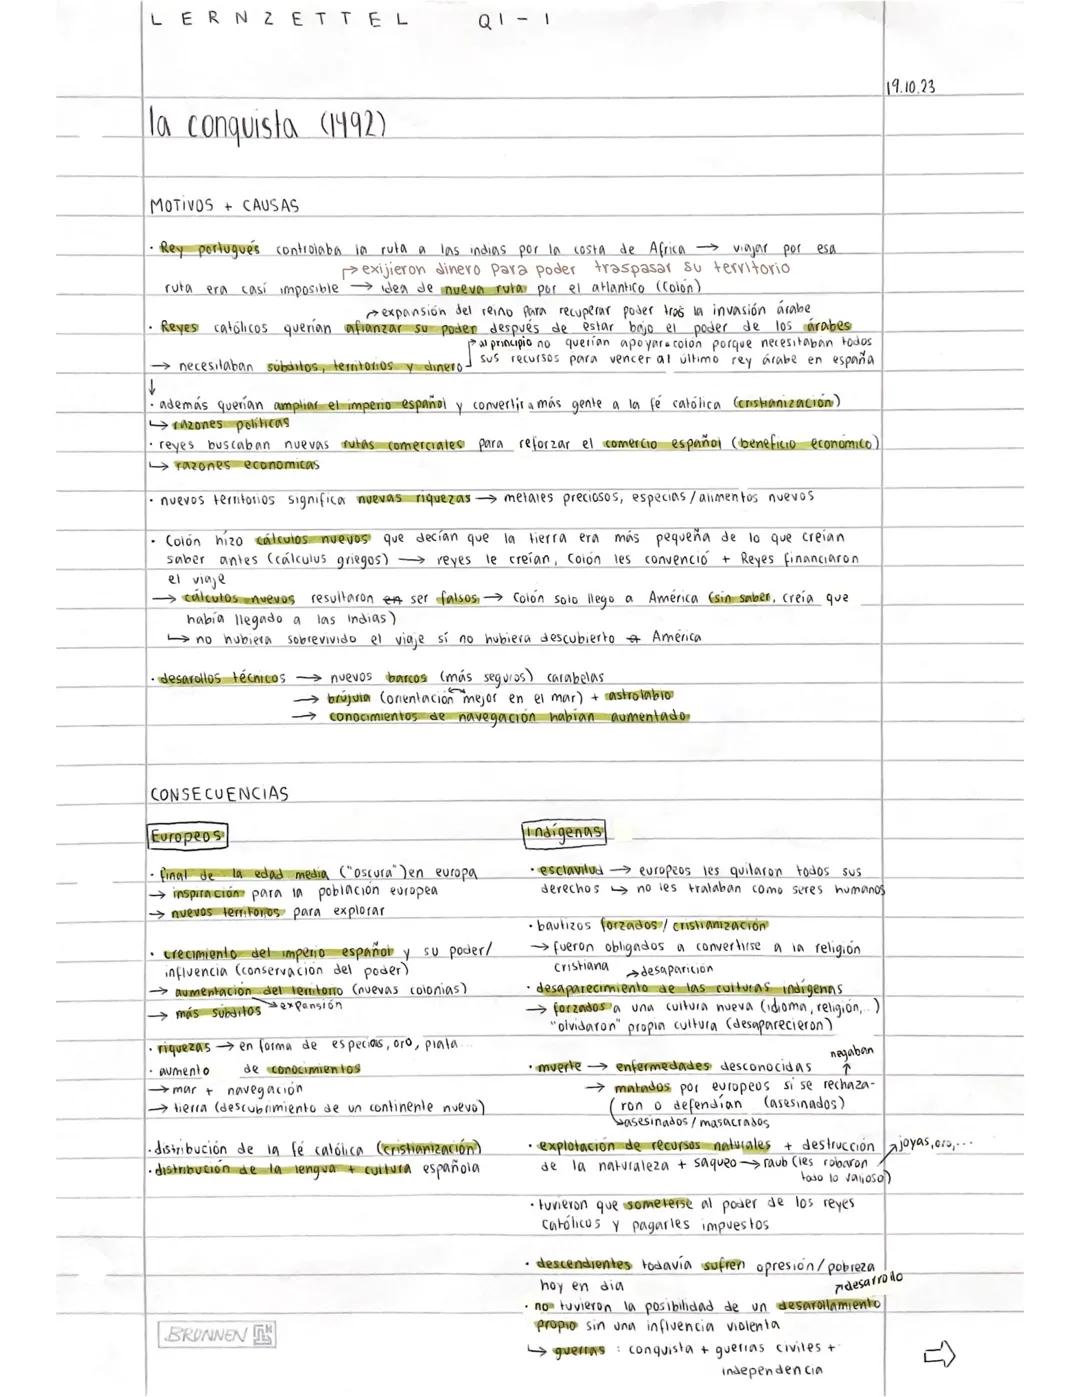 LERNZETTEL Q1-1
19.10.23
la conquista (1492)
MOTIVOS + CAUSAS
· Rey portugués controlaba la ruta a las indias por la costa de Africa → viajar por esa
↱ exijieron dinero para poder traspasar su territorio
ruta era casi imposible → idea de nueva ruta por el atlantico (Colón)
↗ expansión del reino para recuperar poder tras la invasión árabe
· Reyes católicos querían afianzar su poder después de estar bajo el poder de los árabes
↱ al principio no querían apoyar a colón porque necesitaban todos
sus recursos para vencer al último rey árabe en españa
→ necesitaban súbditos, territorios y dinero
↓
· además querían ampliar el imperio español y convertir a más gente a la fé católica (cristianización)
↳ razones políticas
· reyes buscaban nuevas rutas comerciales para reforzar el comercio español (beneficio económico)
↳ razones economicas
· nuevos territorios significa nuevas riquezas → metales preciosos, especias/alimentos nuevos
· Colón hizo cálculos nuevos que decían que la tierra era más pequeña de lo que creían
saber antes (cálculus griegos) → reyes le creían, Colón les convenció + Reyes financiaron
el viaje
→ cálculos nuevos resultaron en ser falsos → Colón solo llego a América (sin saber, creía que
había llegado a las Indias)
↳ no hubiera sobrevivido el viaje sí no hubiera descubierto a América
· desarollos técnicos → nuevos barcos (más seguros) carabelas
→ brújula (orientación mejor en el mar) + astrolabio
→ conocimientos de navegación habían aumentado
CONSECUENCIAS
Europeos
· final de la edad media ("oscura") en europa
→ inspiración para la población europea
→ nuevos territorios para explorar
· crecimiento del imperio español y su poder/
influencia (conservación del poder)
→ aumentación del territorio (nuevas colonias)
↘ expansión
→ más súbditos
· riquezas → en forma de especias, oro, plata...
· aumento de conocimientos
→ mar + navegación
→ tierra (descubrimiento de un continente nuevo)
· distribución de la fé católica (cristianización)
· distribución de la lengua + cultura española
Indígenas
· esclavitud → europeos les quitaron todos sus
derechos ↳ no les trataban como seres humanos
· bautizos forzados / cristianización
→ fueron obligados a convertirse a la religión
cristiana
↗ desaparición
· desaparecimiento de las culturas indígenas
→ forzados a una cultura nueva (idioma, religión,..)
"olvidaron" propia cultura (desaparecieron)
negaban
↑
· muerte → enfermedades desconocidas
→ matados por europeos si se rechaza-
ron o defendían (asesinados)
↳ asesinados / masacrados
· explotación de recursos naturales + destrucción ↗ joyas, oro,...
de la naturaleza + saqueo → raub (les robaron
todo lo valioso)
· tuvieron que someterse al poder de los reyes
católicos y pagarles impuestos
· descendientes todavía sufren opresión/pobreza
hoy en día
↗ desarrollo
· no tuvieron la posibilidad de un desarollamiento
propio sin una influencia violenta
↳ guerras : conquista + guerras civiles +
independencia
BRUNNEN